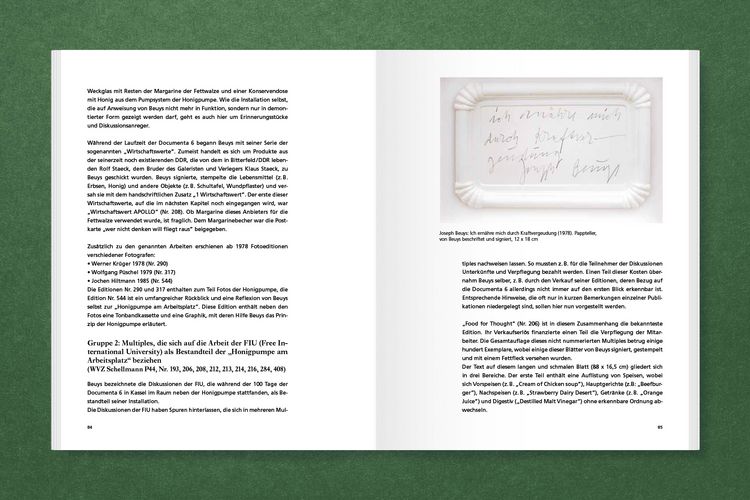 Weckglas mit Resten der Margarine der Fettwalze und einer Konservendose
mit Honig aus dem Pumpsystem der Honigpumpe. Wie die Installation selbst,
die auf Anweisung von Beuys nicht mehr in Funktion, sondern nur in demon-
tierter Form gezeigt werden darf, geht es auch hier um Erinnerungsstücke
und Diskussionsanreger.
Während der Laufzeit der Documenta 6 begann Beuys mit seiner Serie der
sogenannten „Wirtschaftswerte“. Zumeist handelt es sich um Produkte aus
der seinerzeit noch existierenden DDR, die von dem in Bitterfeld/DDR leben-
den Rolf Staeck, dem Bruder des Galeristen und Verlegers Klaus Staeck, zu
Beuys geschickt wurden. Beuys signierte, stempelte die Lebensmittel (z. B.
Erbsen, Honig) und andere Objekte (z. B. Schultafel, Wundpflaster) und ver-
sah sie mit dem handschriftlichen Zusatz „1 Wirtschaftswert“. Der erste dieser
Wirtschaftswerte, auf die im nächsten Kapitel noch eingegangen wird, war
„Wirtschaftswert APOLLO“ (Nr. 208). Ob Margarine dieses Anbieters für die
Fettwalze verwendet wurde, ist fraglich. Dem Margarinebecher war die Post-
karte „wer nicht denken will fliegt raus“ beigegeben.
Zusätzlich zu den genannten Arbeiten erschienen ab 1978 Fotoeditionen
verschiedener Fotografen:
• Werner Krüger 1978 (Nr. 290)
• Wolfgang Püschel 1979 (Nr. 317)
• Jochen Hiltmann 1985 (Nr. 544)
Die Editionen Nr. 290 und 317 enthalten zum Teil Fotos der Honigpumpe, die
Edition Nr. 544 ist ein umfangreicher Rückblick und eine Reflexion von Beuys
selbst zur „Honigpumpe am Arbeitsplatz“. Diese Edition enthält neben den
Fotos eine Tonbandkassette und eine Graphik, mit deren Hilfe Beuys das Prin-
zip der Honigpumpe erläutert.
Gruppe 2: Multiples, die sich auf die Arbeit der FIU (Free In-
ternational University) als Bestandteil der „Honigpumpe am
Arbeitsplatz“ beziehen
(WVZ Schellmann P44, Nr. 193, 206, 208, 212, 213, 214, 216, 284, 408)
Beuys bezeichnete die Diskussionen der FIU, die während der 100 Tage der
Documenta 6 in Kassel im Raum neben der Honigpumpe stattfanden, als Be-
standteil seiner Installation.
Die Diskussionen der FIU haben Spuren hinterlassen, die sich in mehreren Mul-
84
ich ernähre mich
durch Kraftver-
geudung
Joseph Beuys
Joseph Beuys: Ich ernähre mich durch Kraftvergeudung (1978). Pappteller,
von Beuys beschriftet und signiert, 12 x 18 cm
tiples nachweisen lassen. So mussten z. B. für die Teilnehmer der Diskussionen
Unterkünfte und Verpflegung bezahlt werden. Einen Teil dieser Kosten über-
nahm Beuys selber, z. B. durch den Verkauf seiner Editionen, deren Bezug auf
die Documenta 6 allerdings nicht immer auf den ersten Blick erkennbar ist.
Entsprechende Hinweise, die oft nur in kurzen Bemerkungen einzelner Publi-
kationen niedergelegt sind, sollen hier nun vorgestellt werden.
„Food for Thought“ (Nr. 206) ist in diesem Zusammenhang die bekannteste
Edition. Ihr Verkaufserlös finanzierte einen Teil die Verpflegung der Mitar-
beiter. Die Gesamtauflage dieses nicht nummerierten Multiples betrug einige
hundert Exemplare, wobei einige dieser Blätter von Beuys signiert, gestempelt
und mit einem Fettfleck versehen wurden.
Der Text auf diesem langen und schmalen Blatt (88 x 16,5 cm) gliedert sich
in drei Bereiche. Der erste Teil enthält eine Auflistung von Speisen, wobei
sich Vorspeisen (z. B. „Cream of Chicken soup“), Hauptgerichte (z.B: „Beefbur-
ger“), Nachspeisen (z. B. „Strawberry Dairy Desert“), Getränke (z. B. „Orange
Juice“) und Digestiv („Destilled Malt Vinegar“) ohne erkennbare Ordnung ab-
wechseln.
85